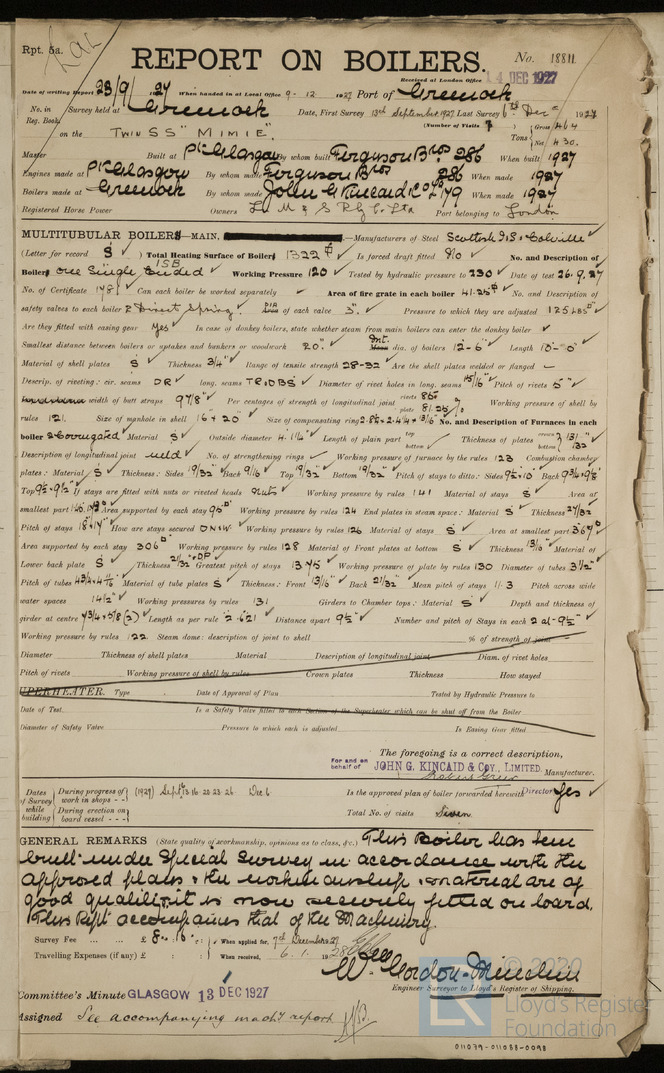 Rpt. 5a.
REPORT ON BOILERS.
No. 18811
Received at London Office 14 DEC 1927
Date of writing Report 23/9/1927 When handed in at Local Office 9-12-1927 Port of Greenock
No. in Survey held at Greenock Date, First Survey 13th September 1927 Last Survey 6th Dec 1927
Reg. Book. (Number of Visits 7)
on the TWIN SS "MIMIE". Tons { Gross 464 Net 430.
Master Built at Pt Glasgow By whom built Ferguson Bros 286 When built 1927
Engines made at Pt Glasgow By whom made Ferguson Bros 286 When made 1927
Boilers made at Greenock By whom made John G Kincaid & Co Ld 179 When made 1927
Registered Horse Power Owners L M & S Rly Co Ltd Port belonging to London
MULTITUBULAR BOILERS—MAIN, —Manufacturers of Steel Scottish I.S. Colville
(Letter for record S) Total Heating Surface of Boilers 1322 Is forced draft fitted No No. and Description of
Boilers One Single Ended Working Pressure 120 Tested by hydraulic pressure to 230 Date of test 26.9.27
No. of Certificate 1781 Can each boiler be worked separately Area of fire grate in each boiler 41.25 No. and Description of
safety valves to each boiler 2 Direct Spring. of each valve 3". Pressure to which they are adjusted 125 LBS
Are they fitted with easing gear Yes In case of donkey boilers, state whether steam from main boilers can enter the donkey boiler
Smallest distance between boilers or uptakes and bunkers or woodwork 20." Int. dia. of boilers 12'-6" Length 10'-0"
Material of shell plates S Thickness 3/4" Range of tensile strength 28-32 Are the shell plates welded or flanged
Descrip. of riveting: cir. seams DR long. seams TR.DBS Diameter of rivet holes in long. seams 15/16" Pitch of rivets 5"
width of butt straps 9 7/8" Per centages of strength of longitudinal joint rivets 86 plate 81.25 Working pressure of shell by
rules 121. Size of manhole in shell 16 x 20" Size of compensating ring No. and Description of Furnaces in each
boiler 2 Corrugated Material S Outside diameter Length of plain part top bottom Thickness of plates crown bottom
Description of longitudinal joint weld No. of strengthening rings Working pressure of furnace by the rules 123 Combustion chamber
plates: Material S Thickness: Sides 19/32" Back 9/16 Top 19/32 Bottom 19/32 Pitch of stays to ditto: Sides Back
Top If stays are fitted with nuts or riveted heads Nuts Working pressure by rules 141 Material of stays S Area at
smallest part Area supported by each stay 95 Working pressure by rules 124 End plates in steam space: Material S Thickness 27/32
Pitch of stays 18 x 17" How are stays secured DN&W. Working pressure by rules 126 Material of stays S Area at smallest part 3.67
Area supported by each stay 306 Working pressure by rules 128 Material of Front plates at bottom S Thickness 13/16" Material of
Lower back plate S Thickness 21/32" + DP Greatest pitch of stays 13.75 Working pressure of plate by rules 130 Diameter of tubes 3 1/2"
Pitch of tubes Material of tube plates S Thickness: Front 13/16" Back 21/32" Mean pitch of stays Pitch across wide
water spaces 14 1/2" Working pressures by rules 131 Girders to Chamber tops: Material S Depth and thickness of
girder at centre Length as per rule Distance apart 9 1/2" Number and pitch of Stays in each 2 at 9 1/2"
Working pressure by rules 122 Steam dome: description of joint to shell % of strength of joint
Diameter Thickness of shell plates Material Description of longitudinal joint Diam. of rivet holes
Pitch of rivets Working pressure of shell by rules Crown plates Thickness How stayed
UPERHEATER. Type Date of Approval of Plan Tested by Hydraulic Pressure to
Date of Test Is a Safety Valve fitted to each Section of the Superheater which can be shut off from the Boiler
Diameter of Safety Valve Pressure to which each is adjusted Is Easing Gear fitted
The foregoing is a correct description,
For and on behalf of JOHN G. KINCAID & COY., LIMITED. Manufacturer.
Director
Dates of Survey while building { During progress of work in shops - - (1927) Sept 13. 16. 20. 23. 26. Dec 6 Is the approved plan of boiler forwarded herewith Yes
During erection on board vessel - - - Total No. of visits Seven
GENERAL REMARKS (State quality of workmanship, opinions as to class, &c.) This Boiler has been
built under Special Survey in accordance with the
approved plans & the workmanship & material are of
good quality. it is now securely fitted on board.
This Rept accompanies that of the Machinery.
Survey Fee ... ... £ 8 : 16 : When applied for, 7th December 1927
Travelling Expenses (if any) £ : : When received, 6.1.1928
W. Gordon-
Engineer Surveyor to Lloyd's Register of Shipping.
Committee's Minute GLASGOW 13 DEC 1927
Assigned See accompanying machy report
© 2020
LR
Lloyd's Register
Foundation
011079-011088-0098